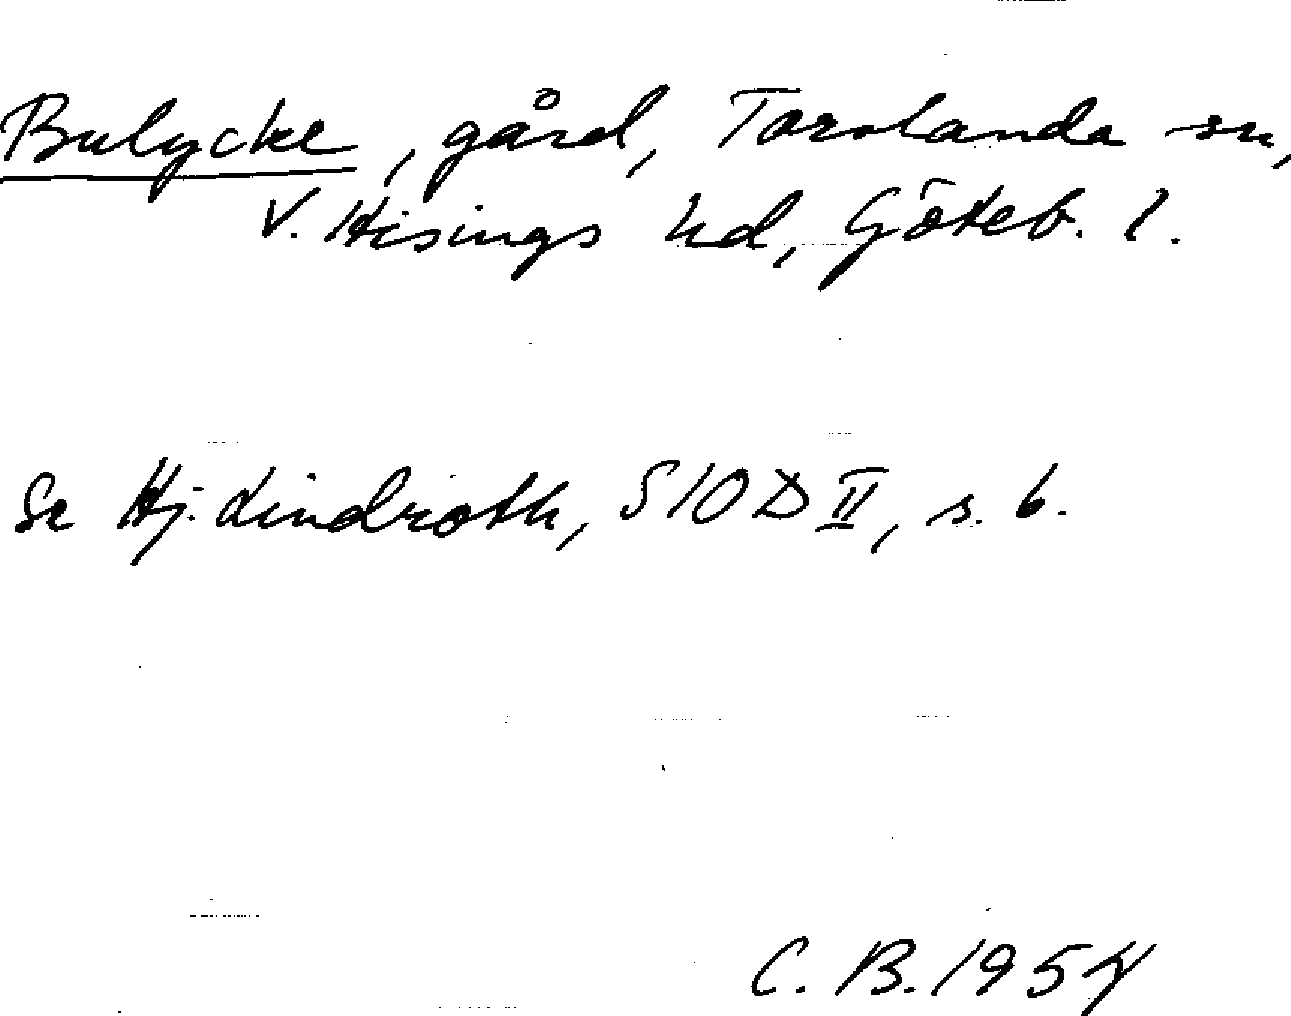 Bulycke, gård, Torslanda sn,
V. Hisings hd, Göteb. l.
Se Hj. Lindroth, SIOD II, s. 6.
C. B. 1954